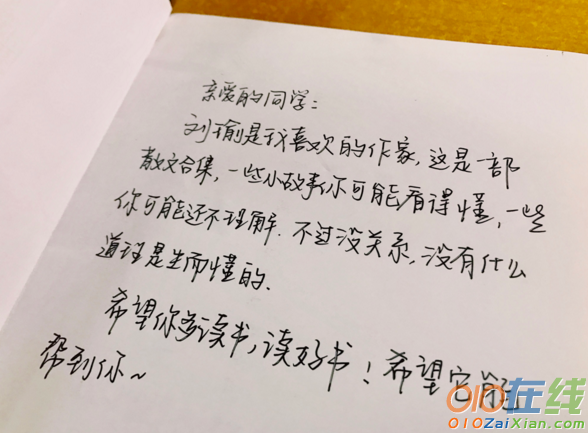 亲爱的同学：
刘瑜是我喜欢的作家，这是一部
散文合集，一些小故事你可能看得懂，一些
你可能还不理解．不过没关系，没有什么
道理是生而懂的．
希望你多读书，读好书！希望它能
帮到你～
010在线
010ZaiXian.com